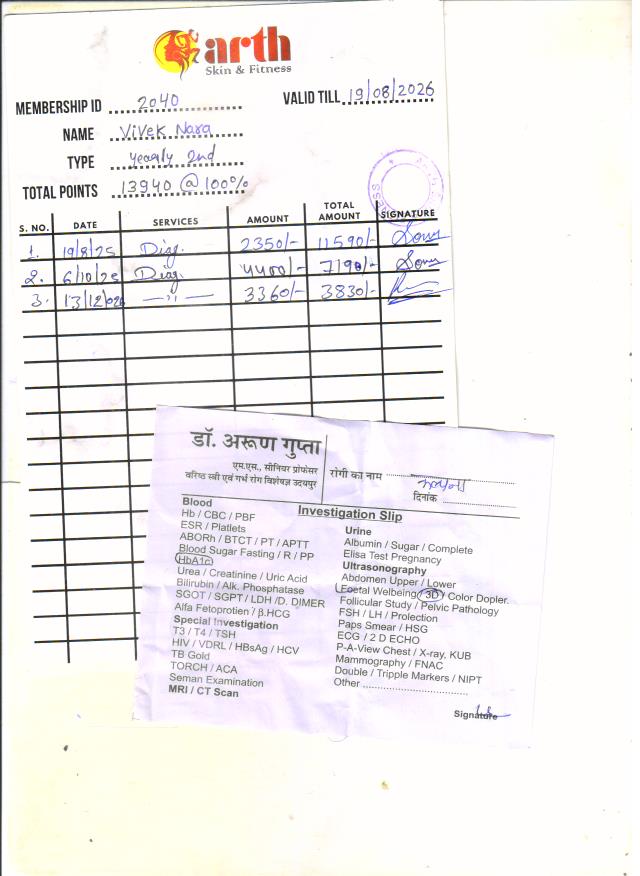 arth
Skin & Fitness
MEMBERSHIP ID 2040
VALID TILL 19/08/2026
NAME Vivek Nara
TYPE Yearly 2nd
TOTAL POINTS 13940 @ 100%
S. NO. DATE SERVICES AMOUNT TOTAL AMOUNT SIGNATURE
1. 19/8/25 Diag. 2350/- 11590/-
2. 6/10/25 Diag. 4400/- 7190/-
3. 13/12/02 —"— 3360/- 3830/-
डॉ. अरूण गुप्ता
एम.एस., सीनियर प्रोफेसर
वरिष्ठ स्त्री एवं गर्भ रोग विशेषज्ञ उदयपुर
रोगी का नाम
दिनांक
Investigation Slip
Blood
Hb / CBC / PBF
ESR / Platlets
ABORh / BTCT / PT / APTT
Blood Sugar Fasting / R / PP
HbA1c
Urea / Creatinine / Uric Acid
Bilirubin / Alk. Phosphatase
SGOT / SGPT / LDH /D. DIMER
Alfa Fetoprotien / β.HCG
Special Investigation
T3 / T4 / TSH
HIV / VDRL / HBsAg / HCV
TB Gold
TORCH / ACA
Seman Examination
MRI / CT Scan
Urine
Albumin / Sugar / Complete
Elisa Test Pregnancy
Ultrasonography
Abdomen Upper / Lower
Foetal Welbeing / 3D / Color Dopler.
Follicular Study / Pelvic Pathology
FSH / LH / Prolection
Paps Smear / HSG
ECG / 2 D ECHO
P-A-View Chest / X-ray, KUB
Mammography / FNAC
Double / Tripple Markers / NIPT
Other
Signature